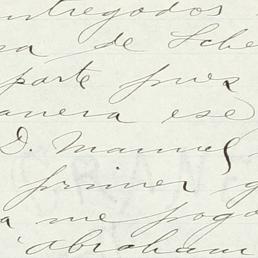 ntregados
na de Sche
parte pues
anera ese
D. Manuel
primer g
a me pogo
Abraham